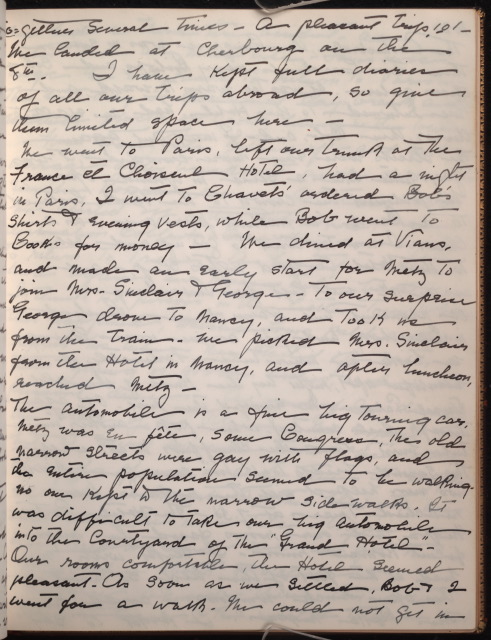 together several times - A pleasant trip,
We landed at Cherbourg on the
8th. I have kept full diaries
of all our trips abroad, so give
them limited space here -
We went to Paris, left our trunk at the
France et Choiseul Hotel, had a night
in Paris, I went to Charvets' ordered Bob's
shirts & evening vests, while Bob went to
Cooks for money - We dined at Vians,
and made an early start for Metz to
join Mrs. Sinclair & George - To our surprise
George drove to Nancy, and took us
from the train - We picked Mrs. Sinclair
from the Hotel in Nancy, and after luncheon,
reached Metz -
The automobile is a fine big touring car.
Metz was en fête, some Congress, the old
narrow streets were gay with flags, and
the entire population seemed to be walking.
no one kept to the narrow sidewalks. It
was difficult to take our big automobile
into the Courtyard of the "Grand Hotel" -
Our rooms comfortable, the Hotel seemed
pleasant - As soon as we settled, Bob & I
went for a walk. We could not get in